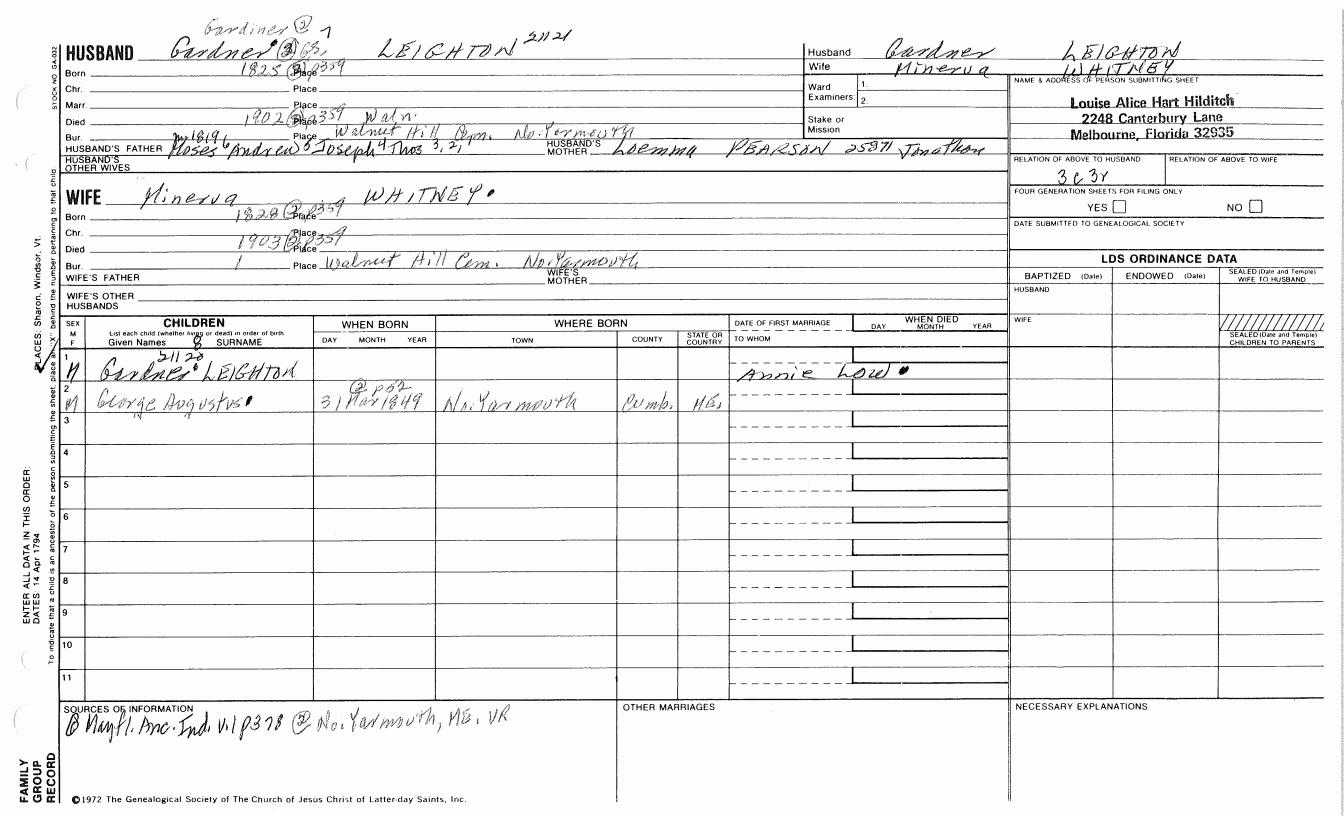 Gardiner ② 7
HUSBAND Gardner ③ LEIGHTON 21121
Born 1825 ② p359 Place
Chr. Place
Marr. Place
Died 1902 ② p359 Place Waln.
Bur. Place Walnut Hill Cem. No. Yarmouth
HUSBAND'S FATHER Moses Andrew 5 Joseph 4 Thos 3, 2, 1 HUSBAND'S MOTHER Loemma PEARSON 25871 Jonathan
HUSBAND'S OTHER WIVES
WIFE Minerva WHITNEY
Born 1828 ② p359 Place
Chr. Place
Died 1903 ② p359 Place
Bur. Place Walnut Hill Cem. No. Yarmouth
WIFE'S FATHER WIFE'S MOTHER
WIFE'S OTHER HUSBANDS
Husband Gardner LEIGHTON
Wife Minerva WHITNEY
Ward Examiners: 1. 2.
Stake or Mission
NAME & ADDRESS OF PERSON SUBMITTING SHEET
Louise Alice Hart Hilditch
2248 Canterbury Lane
Melbourne, Florida 32935
RELATION OF ABOVE TO HUSBAND RELATION OF ABOVE TO WIFE
3c3r
FOUR GENERATION SHEETS FOR FILING ONLY
YES NO
DATE SUBMITTED TO GENEALOGICAL SOCIETY
LDS ORDINANCE DATA
BAPTIZED (Date) ENDOWED (Date) SEALED (Date and Temple) WIFE TO HUSBAND
HUSBAND
WIFE
SEALED (Date and Temple) CHILDREN TO PARENTS
SEX M F
CHILDREN
List each child (whether living or dead) in order of birth
Given Names 8 SURNAME
WHEN BORN
DAY MONTH YEAR
WHERE BORN
TOWN COUNTY STATE OR COUNTRY
DATE OF FIRST MARRIAGE
TO WHOM
WHEN DIED
DAY MONTH YEAR
21120
1 M Gardner LEIGHTON Annie Low
② p52
2 M George Augustus 31 Mar 1849 No. Yarmouth Cumb. ME.
3
4
5
6
7
8
9
10
11
SOURCES OF INFORMATION
Mayfl. Anc. Ind. V.1 p378 ② No. Yarmouth, ME. VR
OTHER MARRIAGES
NECESSARY EXPLANATIONS
©1972 The Genealogical Society of The Church of Jesus Christ of Latter-day Saints, Inc.
STOCK NO. GA-032
To indicate that a child is an ancestor of the person submitting the sheet, place an "X" behind the number pertaining to that child.
ENTER ALL DATA IN THIS ORDER:
DATES 14 Apr 1794
PLACES: Sharon, Windsor, Vt.
FAMILY GROUP RECORD